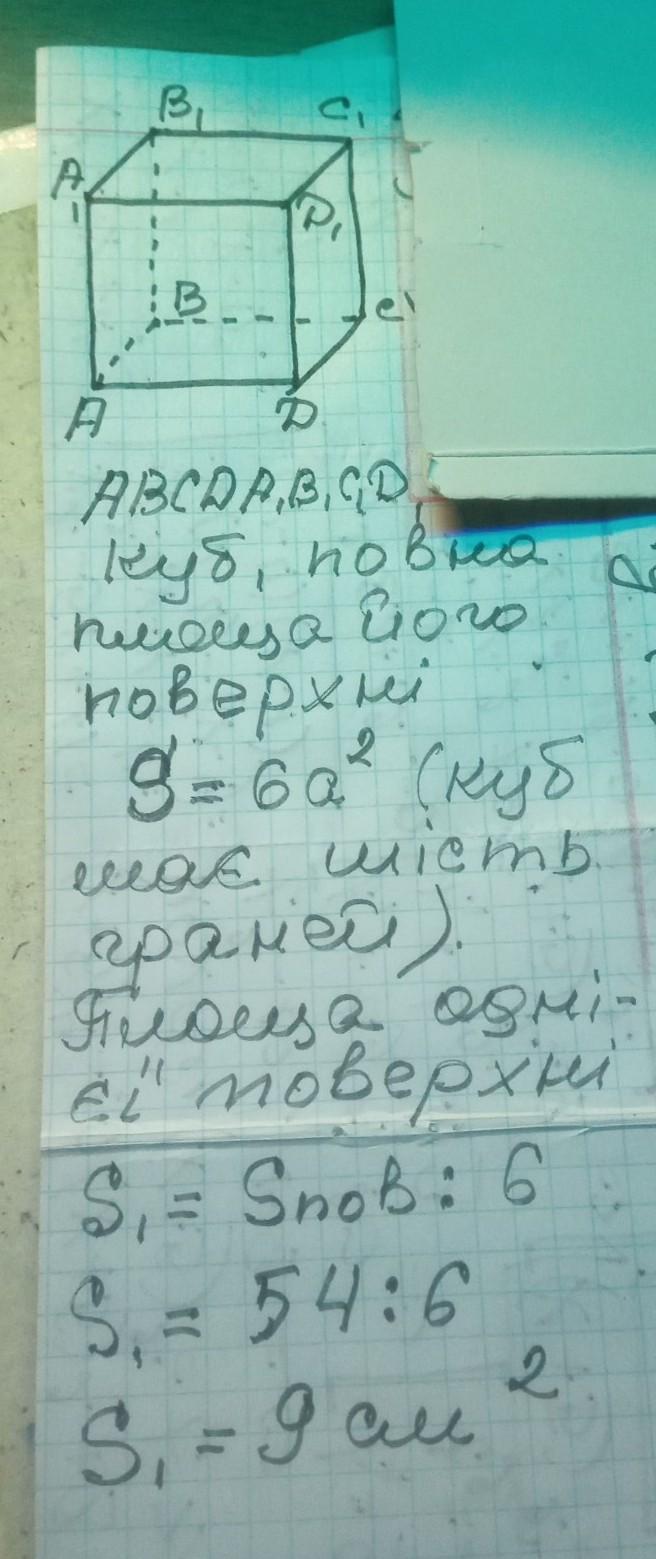 B₁ C₁
A₁ D₁
B C
A D
ABCDA₁B₁C₁D₁
куб, повна
площа його
поверхні
S = 6a² (куб
має шість
граней).
Площа одні-
єї поверхні
S₁ = Sпов : 6
S₁ = 54 : 6
S₁ = 9 см²